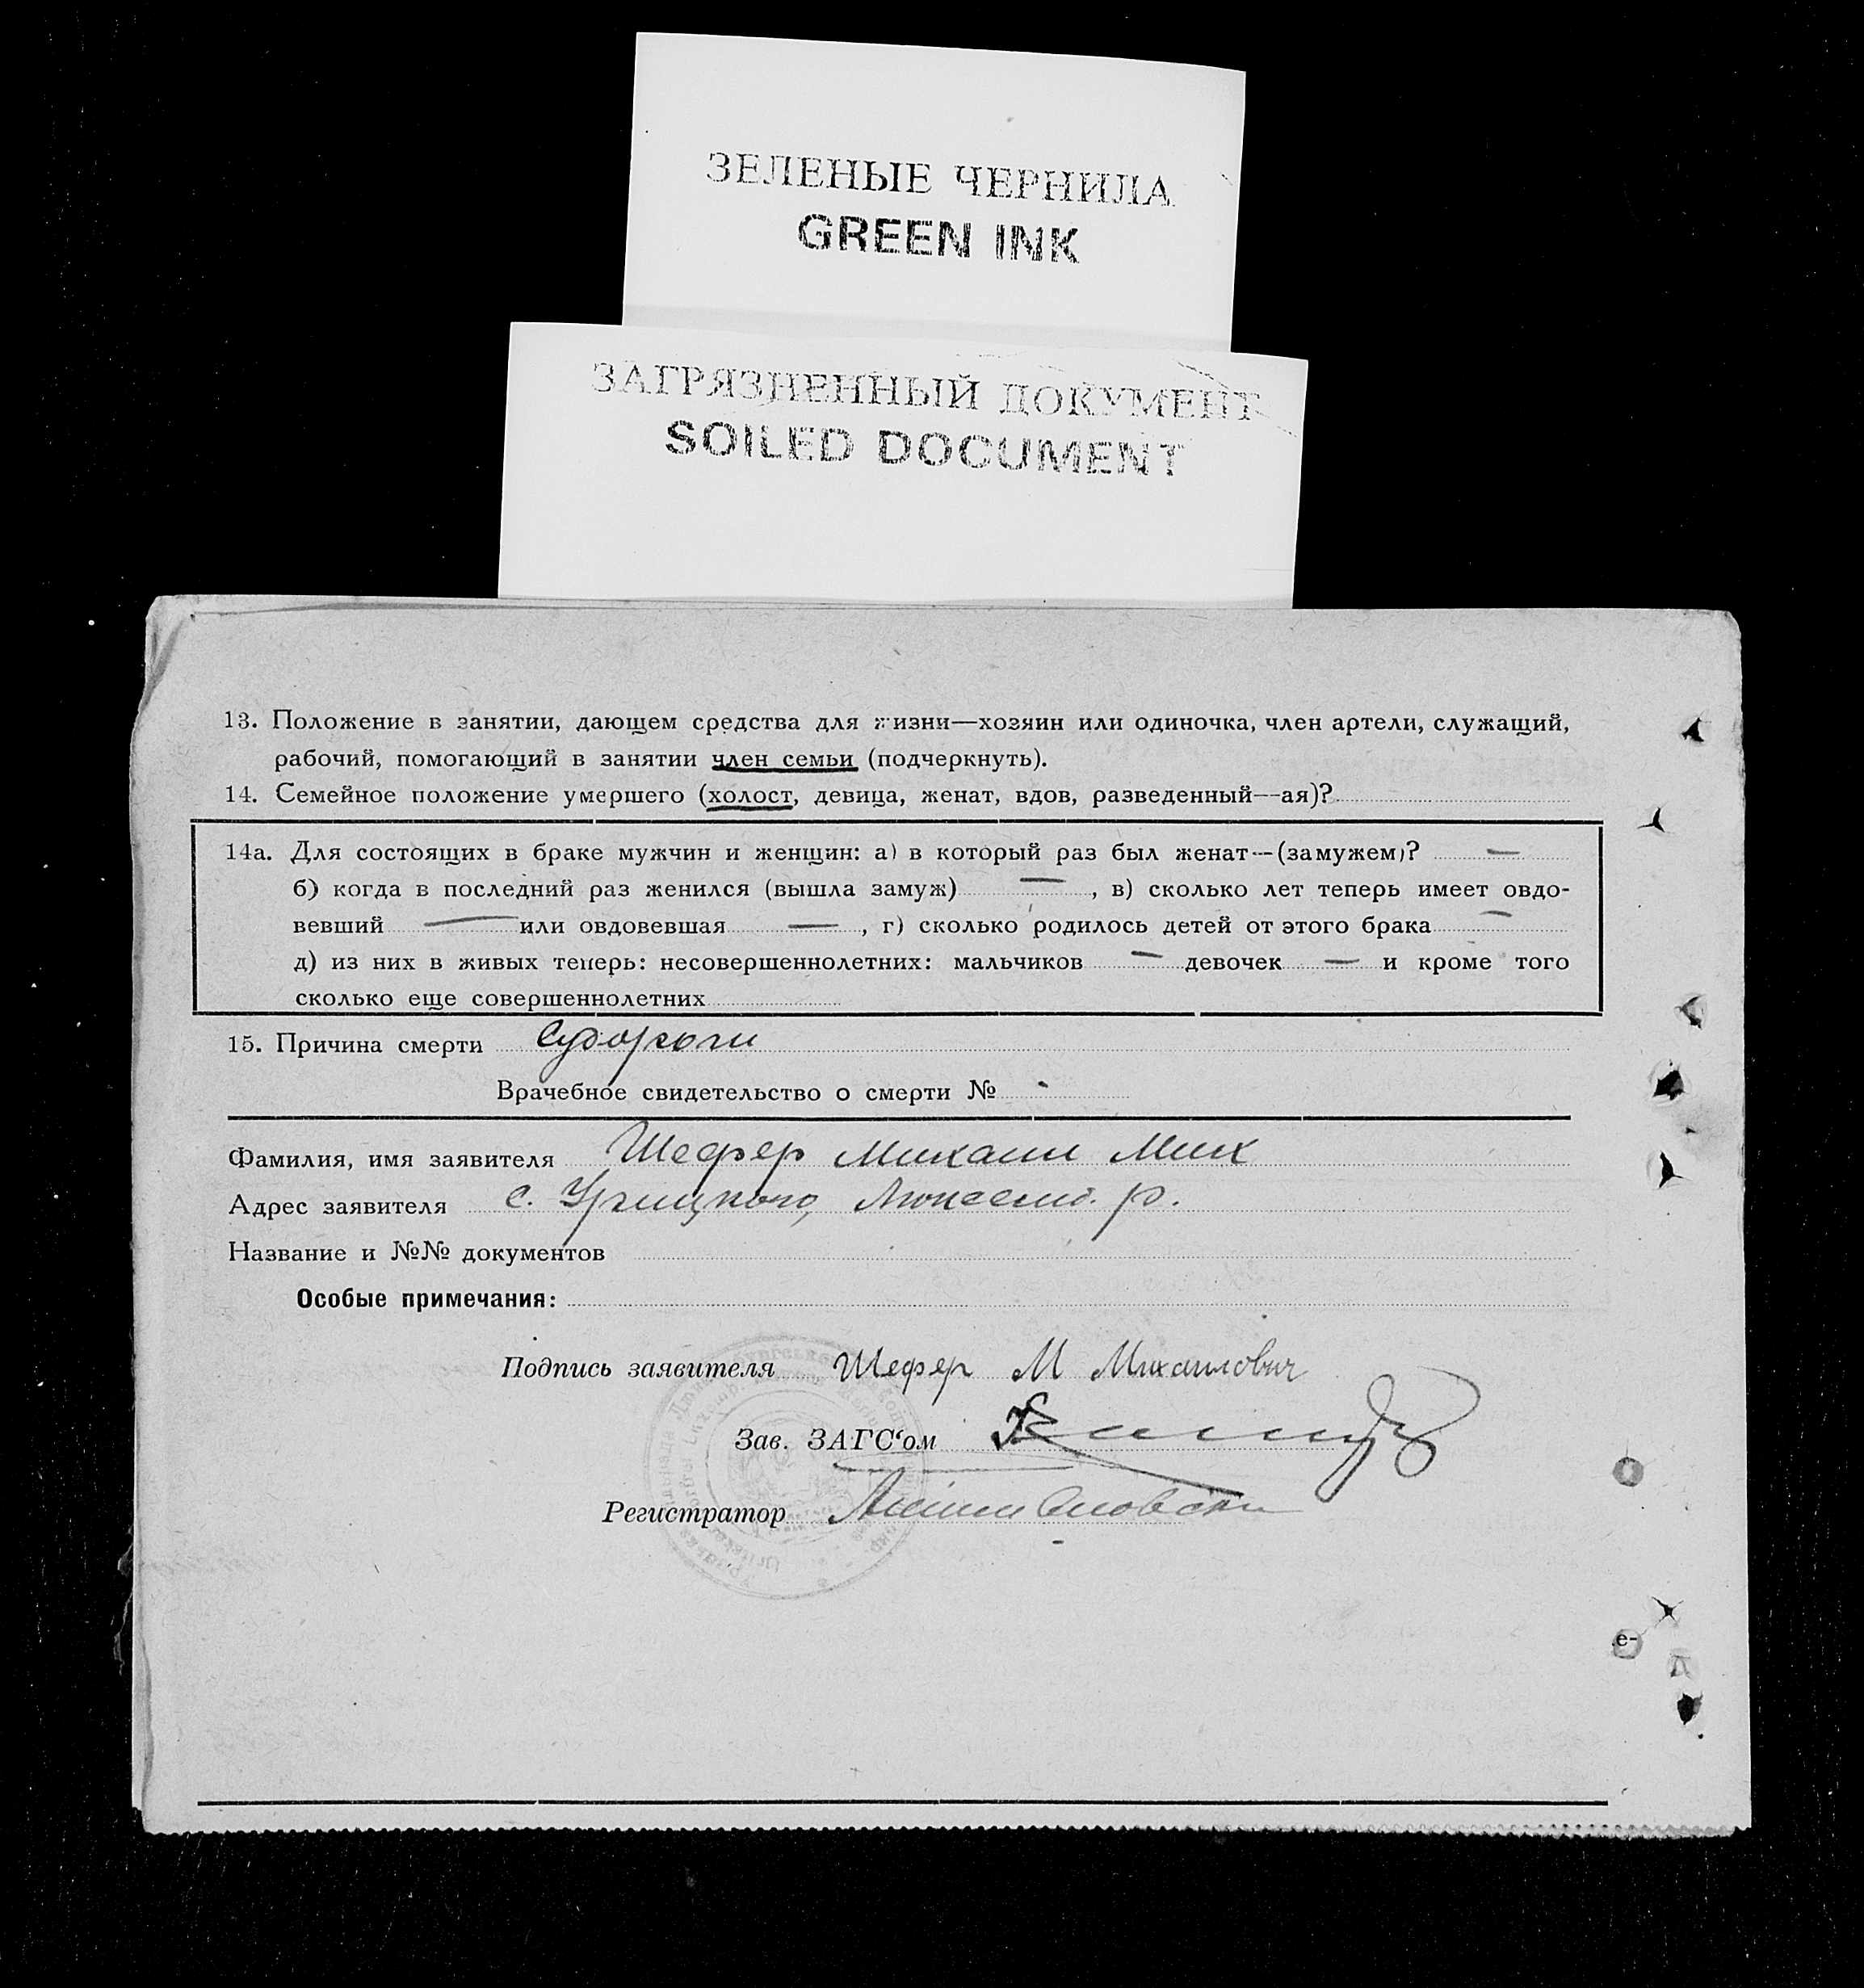 ЗЕЛЕНЫЕ ЧЕРНИЛА
GREEN INK
ЗАГРЯЗНЕННЫЙ ДОКУМЕНТ
SOILED DOCUMENT
13. Положение в занятии, дающем средства для жизни—хозяин или одиночка, член артели, служащий,
рабочий, помогающий в занятии член семьи (подчеркнуть).
14. Семейное положение умершего (холост, девица, женат, вдов, разведенный—ая)?
14а. Для состоящих в браке мужчин и женщин: а) в который раз был женат—(замужем)? —
б) когда в последний раз женился (вышла замуж) — , в) сколько лет теперь имеет овдо-
вевший — или овдовевшая — , г) сколько родилось детей от этого брака —
д) из них в живых теперь: несовершеннолетних: мальчиков — девочек — и кроме того
сколько еще совершеннолетних
15. Причина смерти Судороги
Врачебное свидетельство о смерти № -
Фамилия, имя заявителя Шефер Михаил Мих
Адрес заявителя с. Урицкого, р.
Название и №№ документов
Особые примечания:
Подпись заявителя Шефер М Михаилович
Зав. ЗАГС‘ом
Регистратор
е-